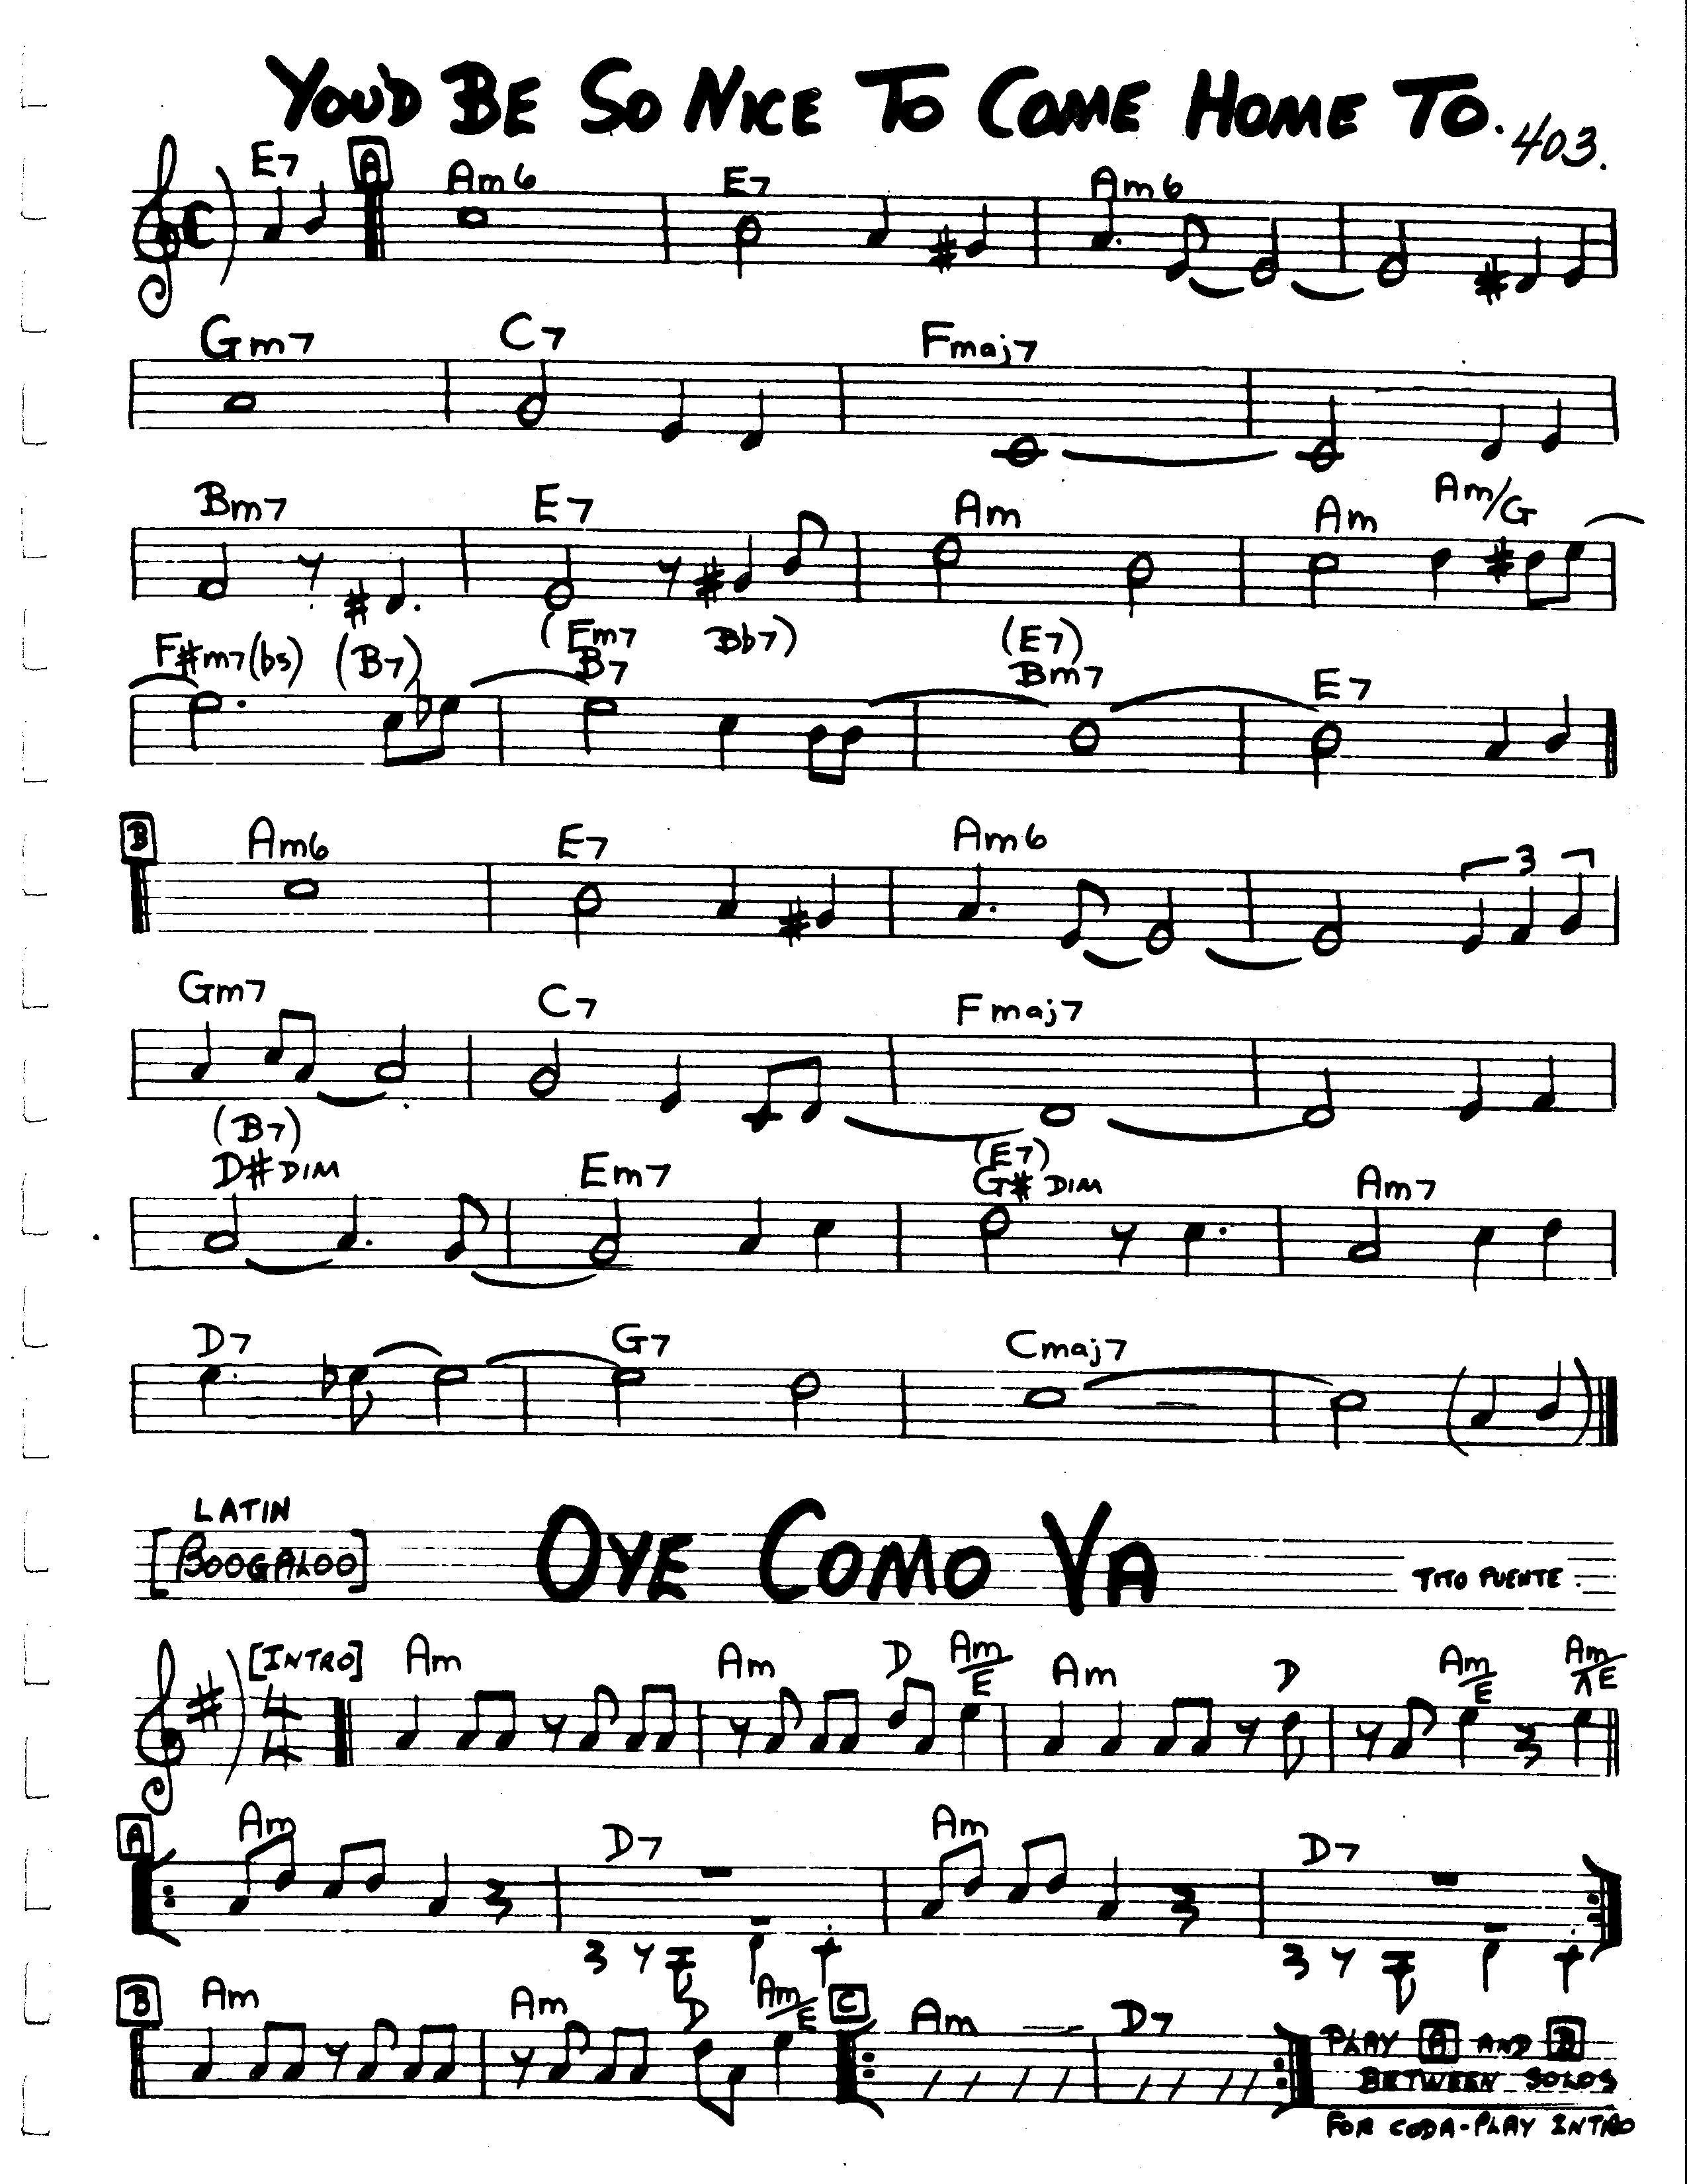 YOU'D BE SO NICE TO COME HOME TO.
403.
E7 A Am6 E7 Am6
Gm7 C7 Fmaj7
Bm7 E7 Am Am Am/G
(Fm7 Bb7) (E7)
F#m7(b5) (B7) B7 Bm7 E7
B Am6 E7 Am6 3
Gm7 C7 Fmaj7
(B7) (E7)
D# DIM Em7 G# DIM Am7
D7 G7 Cmaj7
LATIN
[BOOGALOO] OYE COMO VA TITO PUENTE.
[INTRO] Am Am D Am/E Am D Am/E Am/E
4
4
A Am D7 Am D7
B Am Am D Am/E C Am D7
PLAY A AND B
BETWEEN SOLOS
FOR CODA-PLAY INTRO